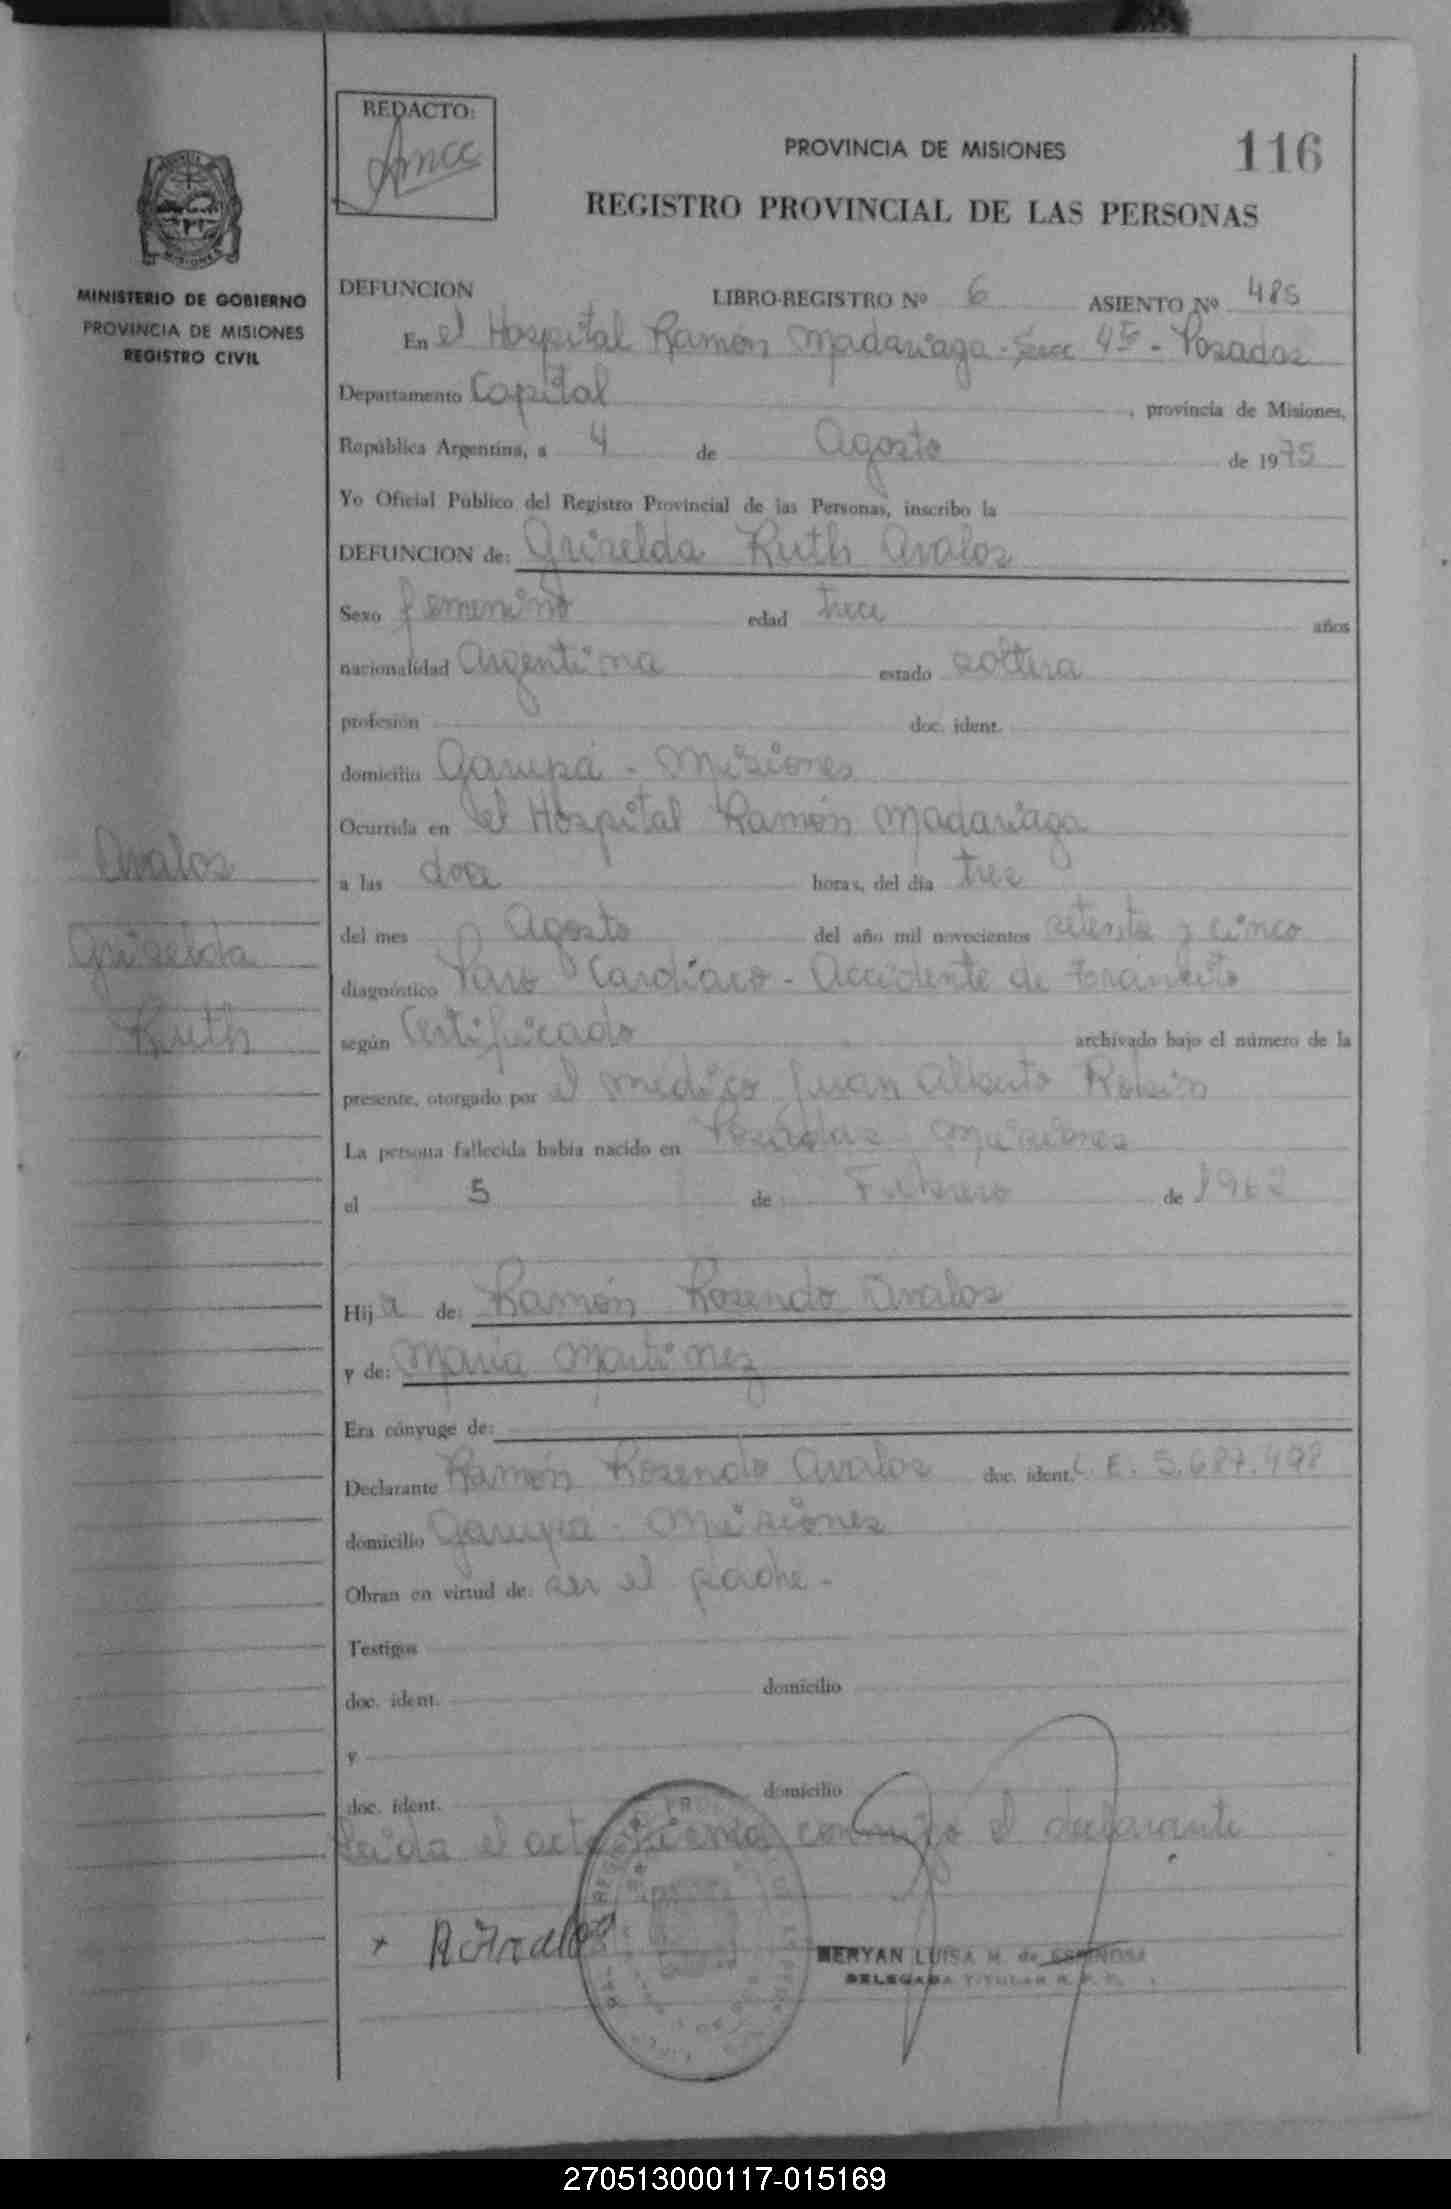 REDACTO:
PROVINCIA DE MISIONES
116
REGISTRO PROVINCIAL DE LAS PERSONAS
MINISTERIO DE GOBIERNO
PROVINCIA DE MISIONES
REGISTRO CIVIL
DEFUNCION LIBRO-REGISTRO Nº 6 ASIENTO Nº 485
En el Hospital Ramón Madariaga - Secc 4ta - Posadas
Departamento Capital, provincia de Misiones,
República Argentina, a 4 de Agosto de 1975
Yo Oficial Público del Registro Provincial de las Personas, inscribo la
DEFUNCION de: Griselda Ruth Avalos
Sexo femenino edad trece años
nacionalidad Argentina estado soltera
profesión doc. ident.
domicilio Garupá - Misiones
Ocurrida en el Hospital Ramón Madariaga
a las doce horas, del día tres
del mes Agosto del año mil novecientos setenta y cinco
diagnóstico Paro Cardíaco - Accidente de tránsito
según Certificado archivado bajo el número de la
presente, otorgado por el médico Juan Alberto
La persona fallecida había nacido en Posadas Misiones
el 5 de Febrero de 1962
Avalos
Griselda
Ruth
Hija de: Ramón Rosendo Avalos
y de: María Martínez
Era cónyuge de:
Declarante Ramón Rosendo Avalos doc. ident. L. E. 5.687.498
domicilio Garupá - Misiones
Obran en virtud de: ser el padre -
Testigos
doc. ident. domicilio
y
doc. ident. domicilio
Leída el acta firma conmigo el declarante
x R Avalos
MERYAN LUISA M. de ESPINOSA
DELEGADA TITULAR R. P. P.
270513000117-015169